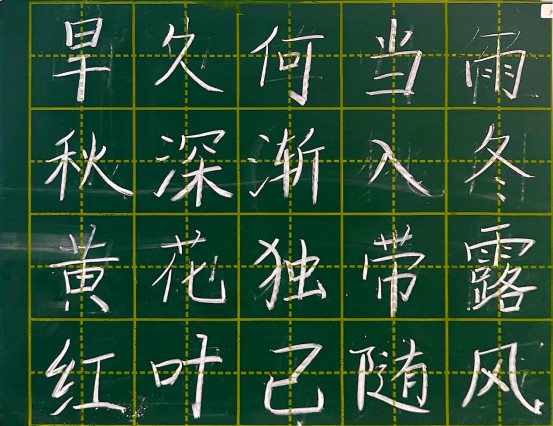 旱久何当雨
秋深渐入冬
黄花独带露
红叶已随风